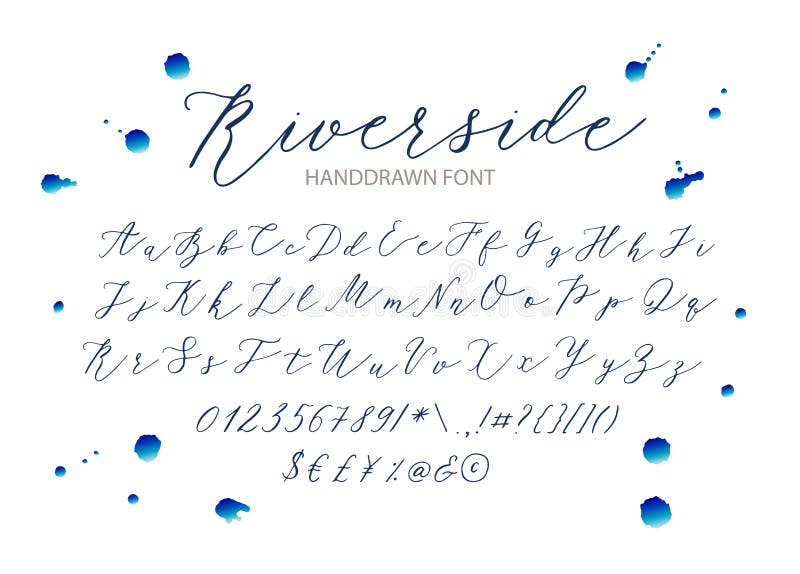 Riverside
HANDDRAWN FONT
Aa Bb Cc Dd Ee Ff Gg Hh Ii
Jj Kk Ll Mm Nn Oo Pp Qq
Rr Ss Tt Uu Vv Xx Yy Zz
012356789/*\.,!#?{}[]()
$€£¥%@&©